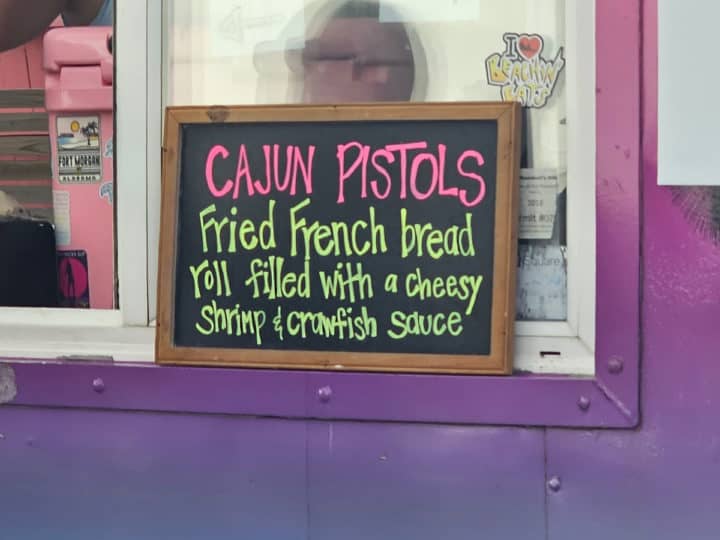 CAJUN PISTOLS
Fried French bread
roll filled with a cheesy
shrimp & crawfish sauce
I
BEACHIN'
EATS
FORT MORGAN
ALABAMA
2018
Square